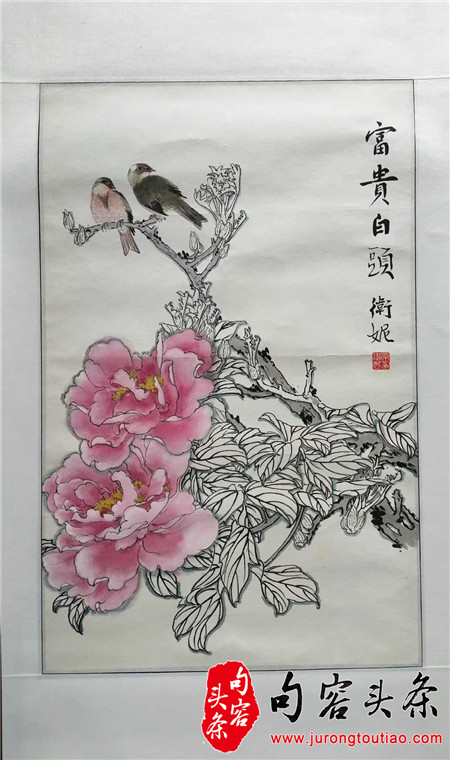 富貴白頭
衛妮
句容
头条
句容头条
www.jurongtoutiao.com